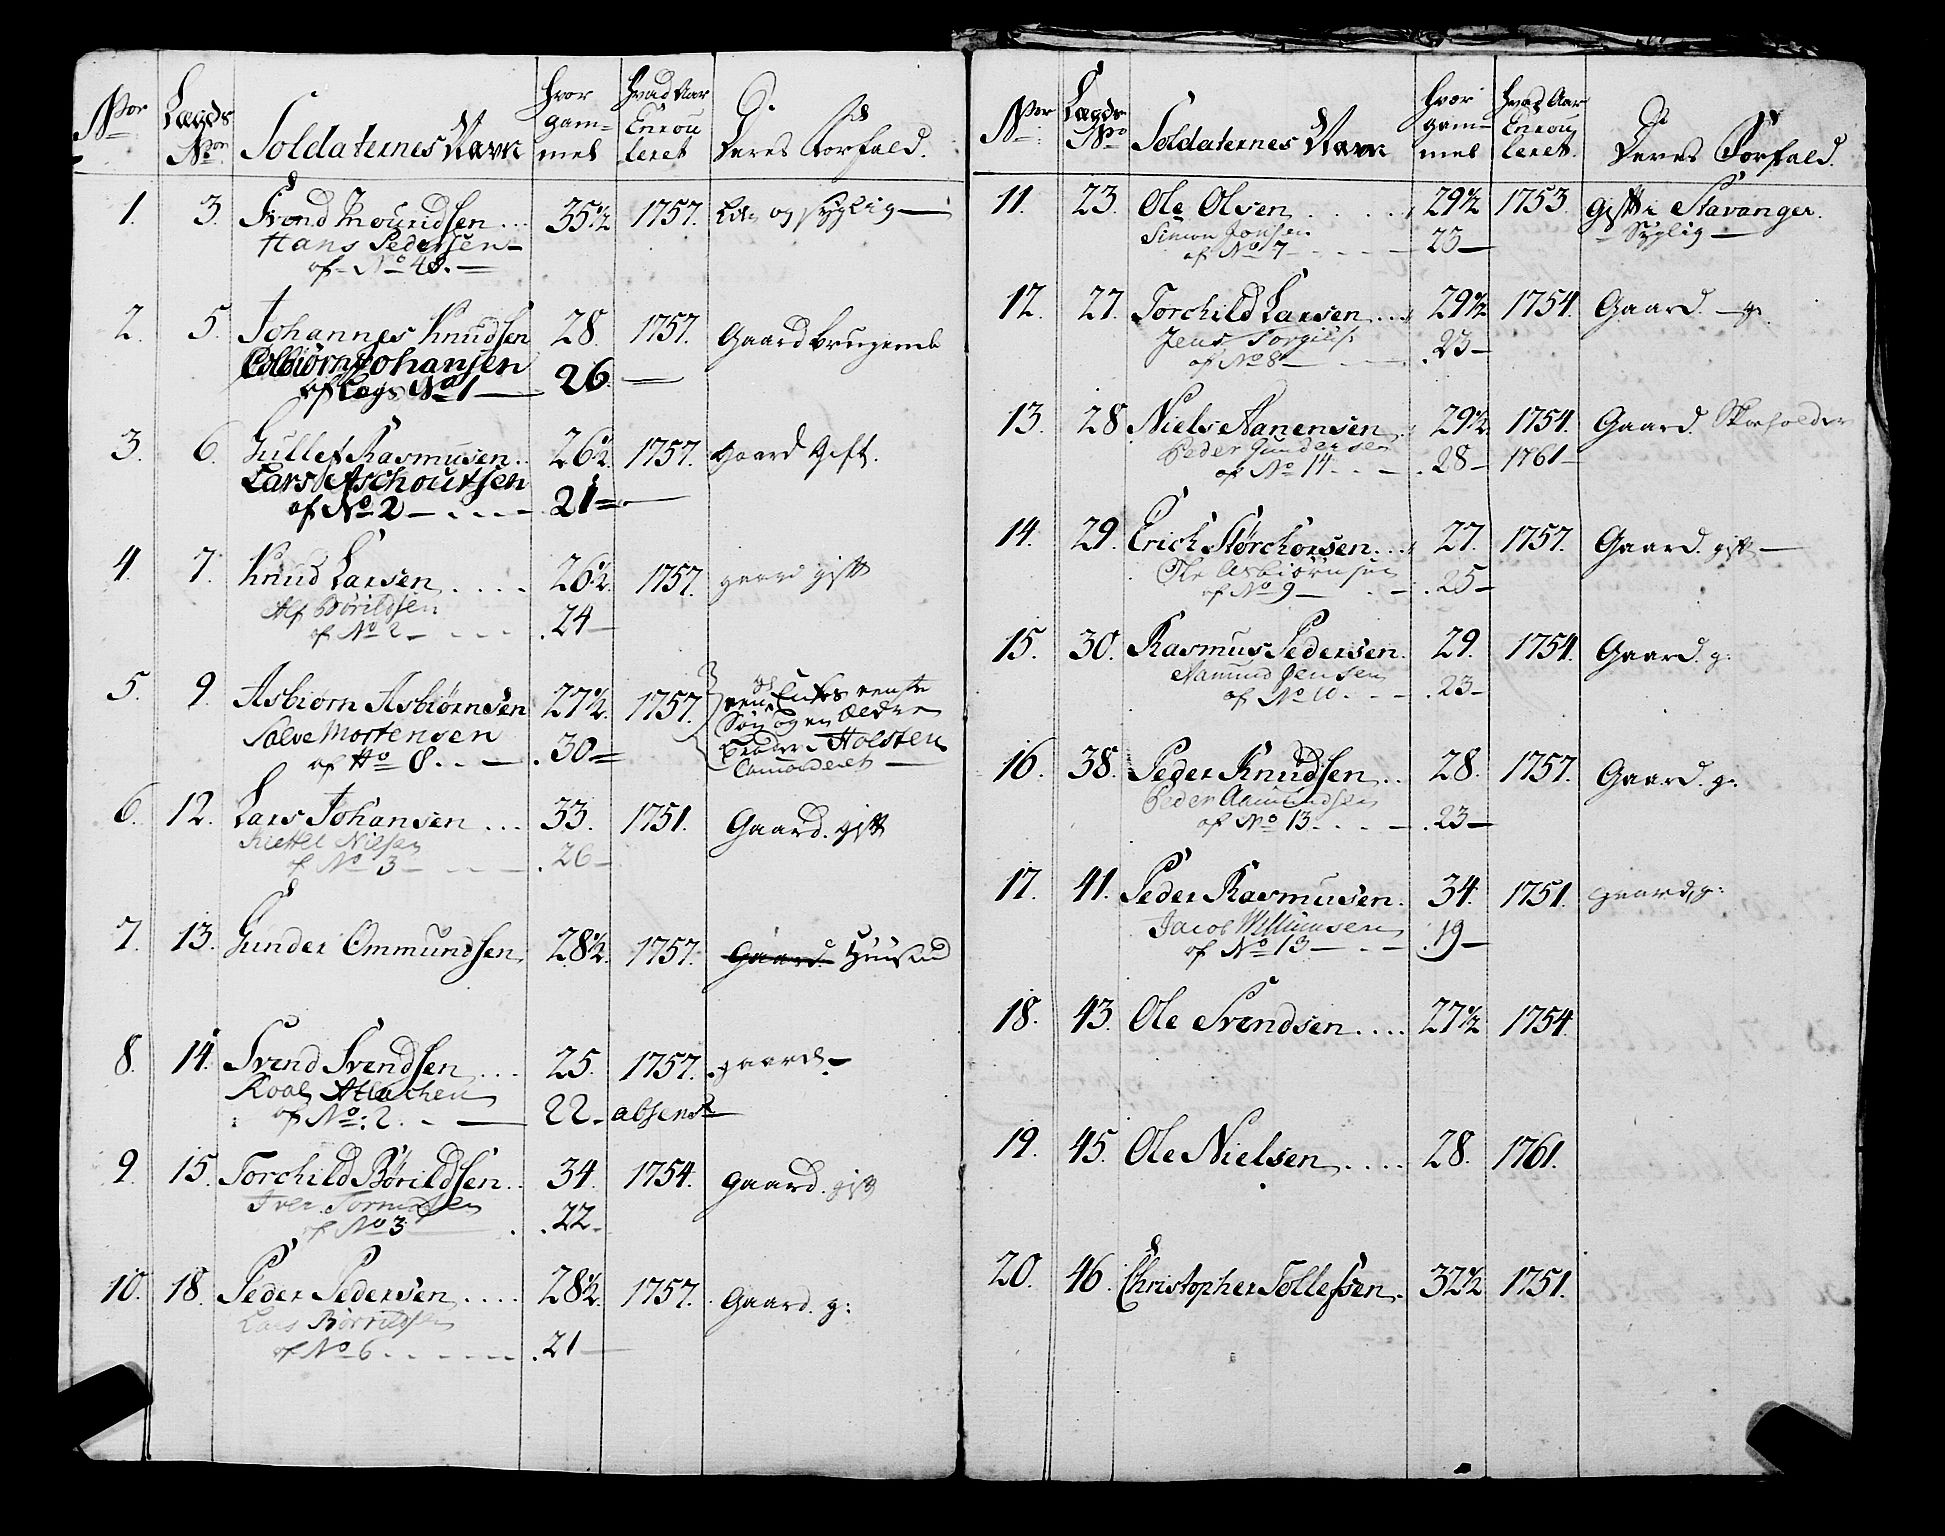 Nor Lægds Nor Soldaternes Navn hvor gammel hvad Aar Enroulleret Deres Forfald.
1. 3. Svend Mouridsen... 35 1/2 1757. Liden og syglig —
Hans Pedersen —
af No 48. —
2. 5. Johannes Knudsen 28. 1757. Gaard brugende
Esbiørn Johansen
af Legs No 1 — 26. —
3. 6. Gullef Rasmusen.. 26 1/2. 1757. Gaard Gift.
Lars Aschoutsen
af No 2 — . . . 21 = —
4. 7. Knud Larsen . . . . 26 1/2. 1757. gaard gift
Alf Børildsen
af No 2 — . . . . 24 —
5. 9. Asbiørn Asbiørnsen 27 1/2. 1757. Enkes eeneste
Søn og en Ældre
Salve Mortensen
af No 8 . . — . 30 = Broder i Holsten
Comanderet —
6. 12. Lars Johansen . . . 33. 1751. Gaard. gift
Kiettel Nielsen
af No 3 — . . — . 26 —
7. 13. Gunder Ommundsen 28 1/2. 1757. Gaard Huusmd
8. 14. Svend Svendsen . . . 25. 1757. gaard —
Roal
af No: 2. — 22 — absent
9. 15. Torchild Børildsen.. 34. 1754. Gaard. gift
Iver
af No 3 . 22 —
10. 18. Peder Pedersen . . . . 28 1/2. 1757. Gaard. g:
Lars Børrildsen
af No 6 . . . . . . . 21 —
Nor Lægds No Soldaternes Navn hvor gammel hvad Aar Enroulleret. Deres Forfald.
11. 23. Ole Olsen . . . . . 29 1/2 1753. Gift i Stavanger.
Simon Jonsen 23 — Syglig —
af No 7 — . . . —
12. 27. Torchild Larsen . . . 29 1/2 1754. Gaard. — g.
Jens Torgils: . 23 —
af No 8 —
13. 28 Niels Aanensen . 29 1/2. 1754. Gaard.
Peder Gundersen
af No 14 . . — . 28 — 1761 —
14. 29. Erich Storchorsen . . . 27. 1757. Gaard. gift —
Ole Asbiørnsen
af No 9 — . — . 25 —
15. 30. Rasmus Pedersen. 29. 1754. Gaard. g:
Aamund Jensen
af No 10 . . — . 23 —
16. 38. Peder Knudsen . . 28. 1757. Gaard. g:
Peder Aamundsen
af No 13 . . . . — . 23 —
17. 41. Peder Rasmusen. 34. 1751. gaard, g:
Jacob Willumsen
af No 13 — . — . 19 —
18. 43. Ole Svendsen . . . . 27 1/2 1754.
19. 45. Ole Nielsen . . . . 28. 1761.
20. 46. Christopher Tollefsen. 32 1/2 1751.